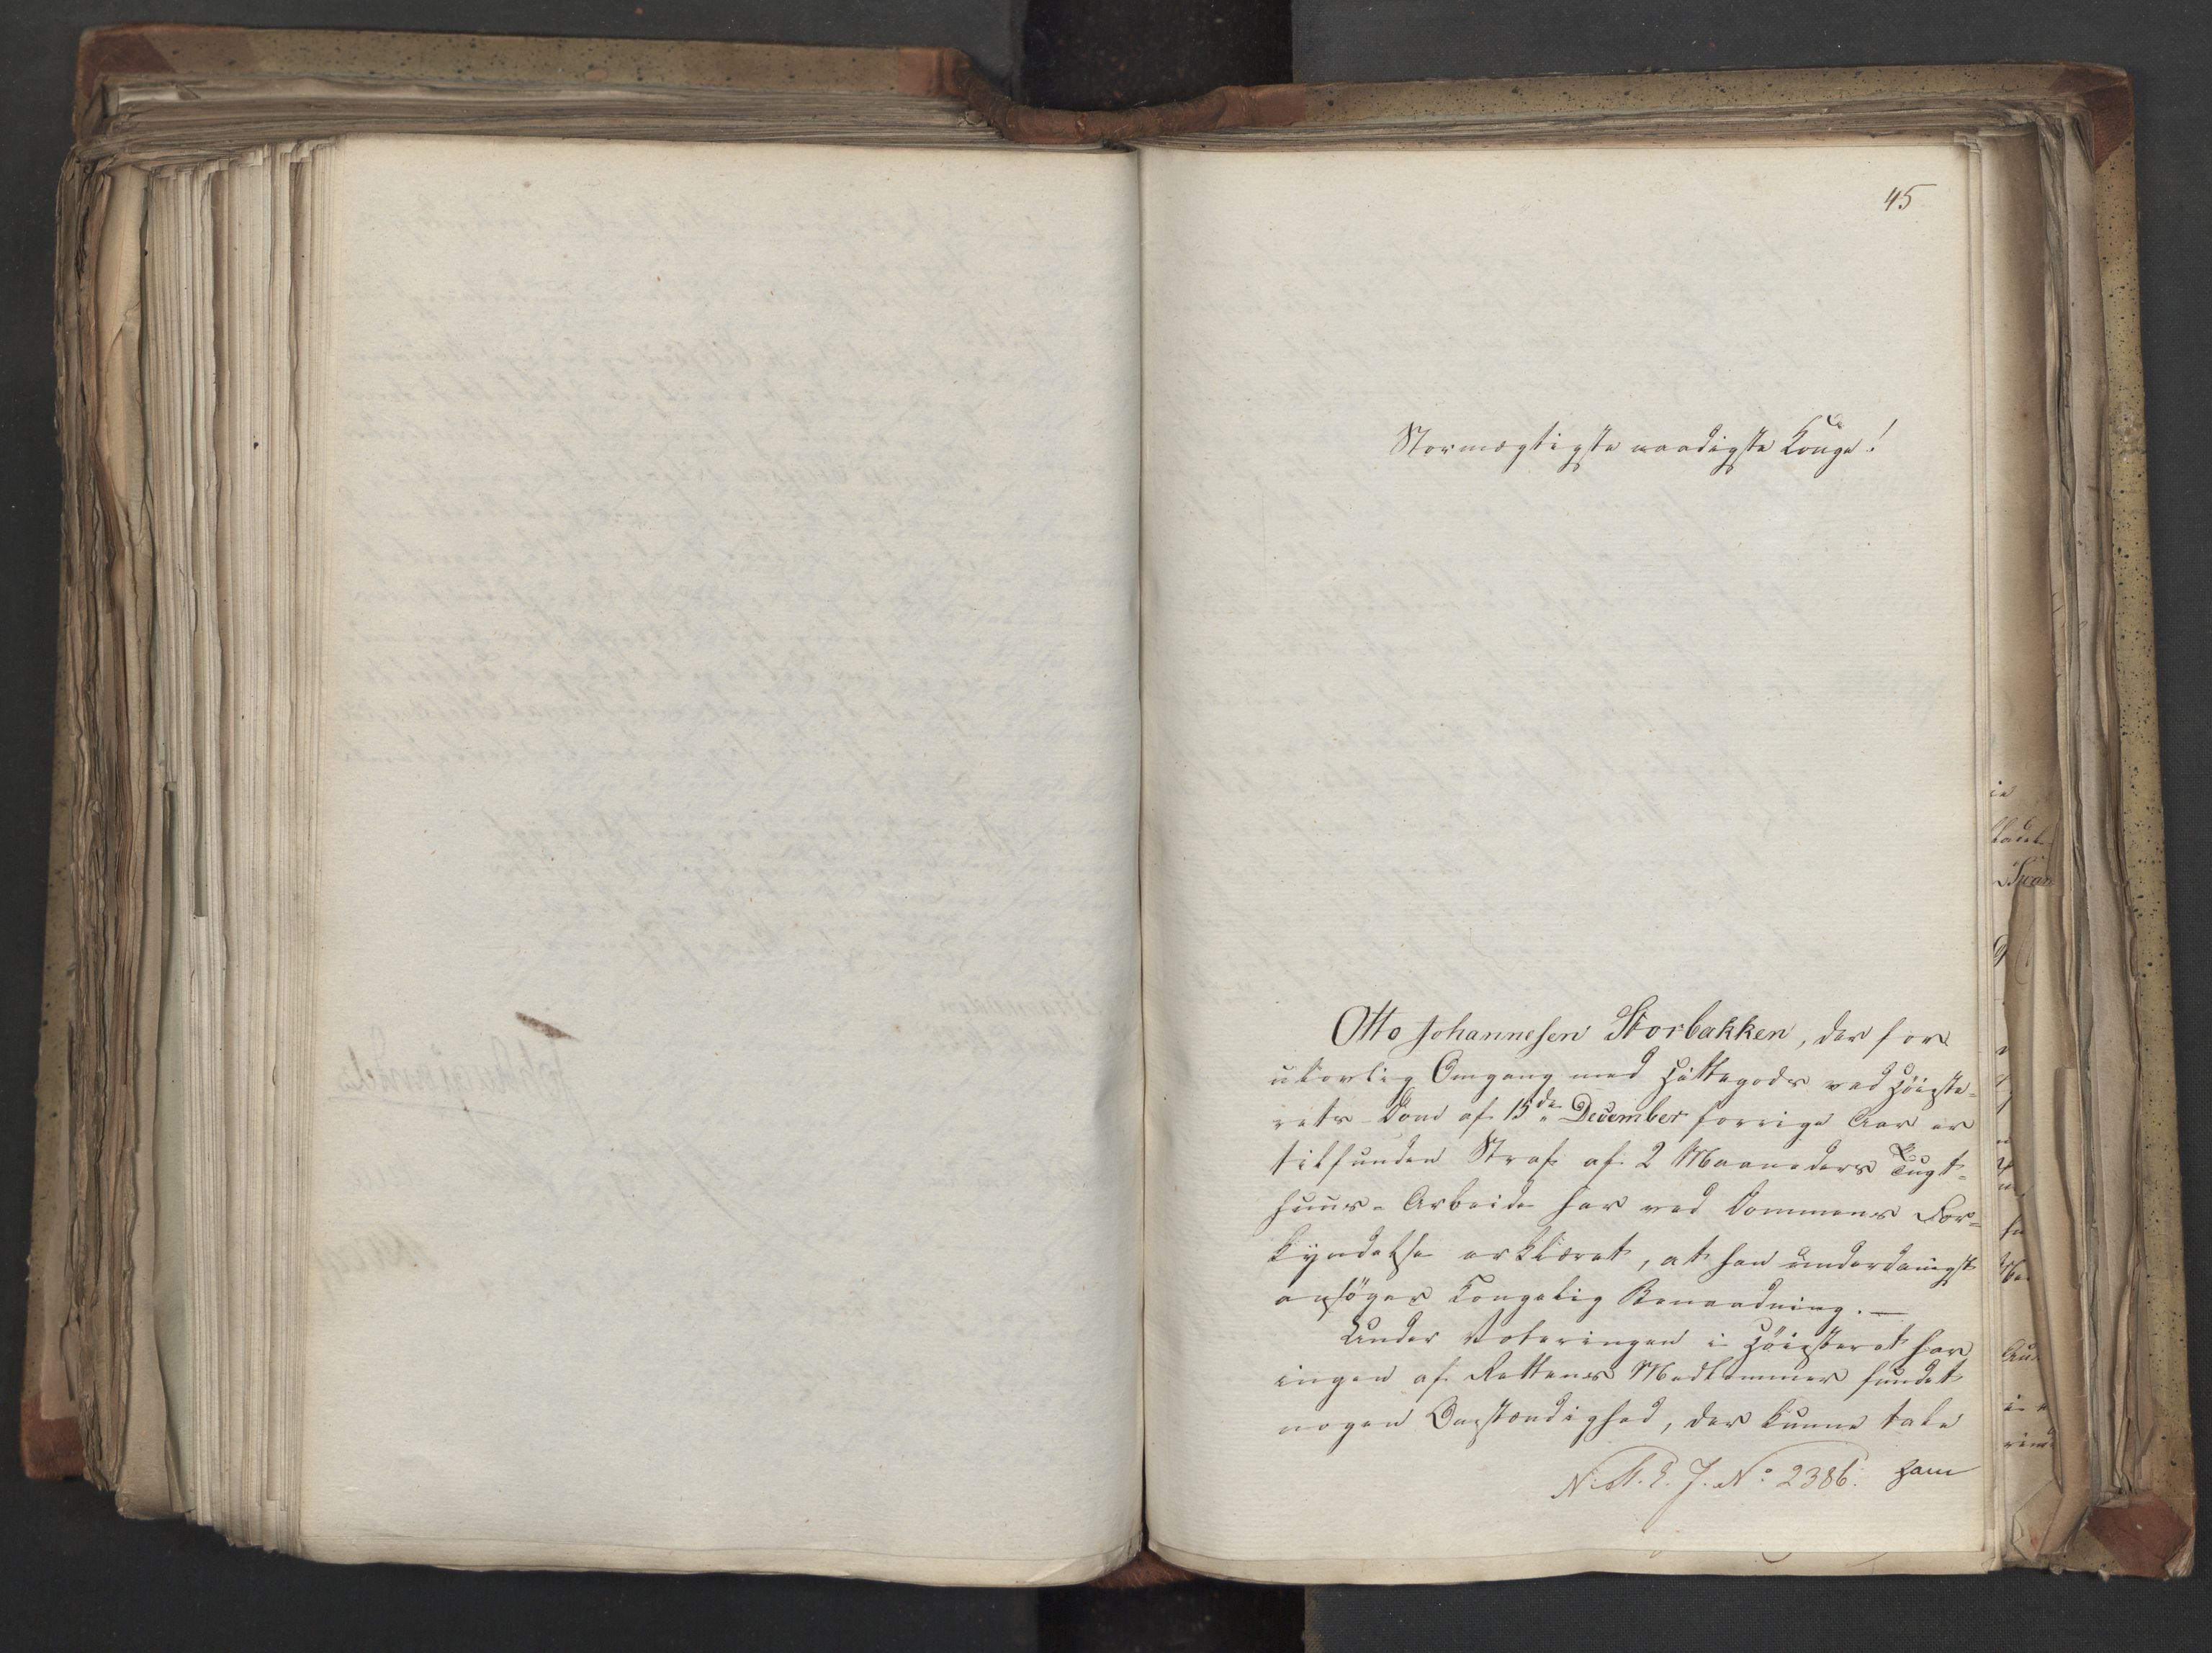 45
Stormægtigste naadigste Konge!
Otto Johannesen Storbakken, der for
ulovlig Omgang med Hittegods ved Høieste-
rets-Dom af 15de December forrige Aar er
tilfunden Straf af 2 Maaneders Tugt-
huus-Arbeide har ved Dommens For-
kyndelse erklæret, at han underdanigst
ansøger Kongelig Benaadning. —
Under Voteringen i Høiesteret har
ingen af Rettens Medlemmer fundet
nogen Omstændighed, der kunne tale
J. No 2386. ham